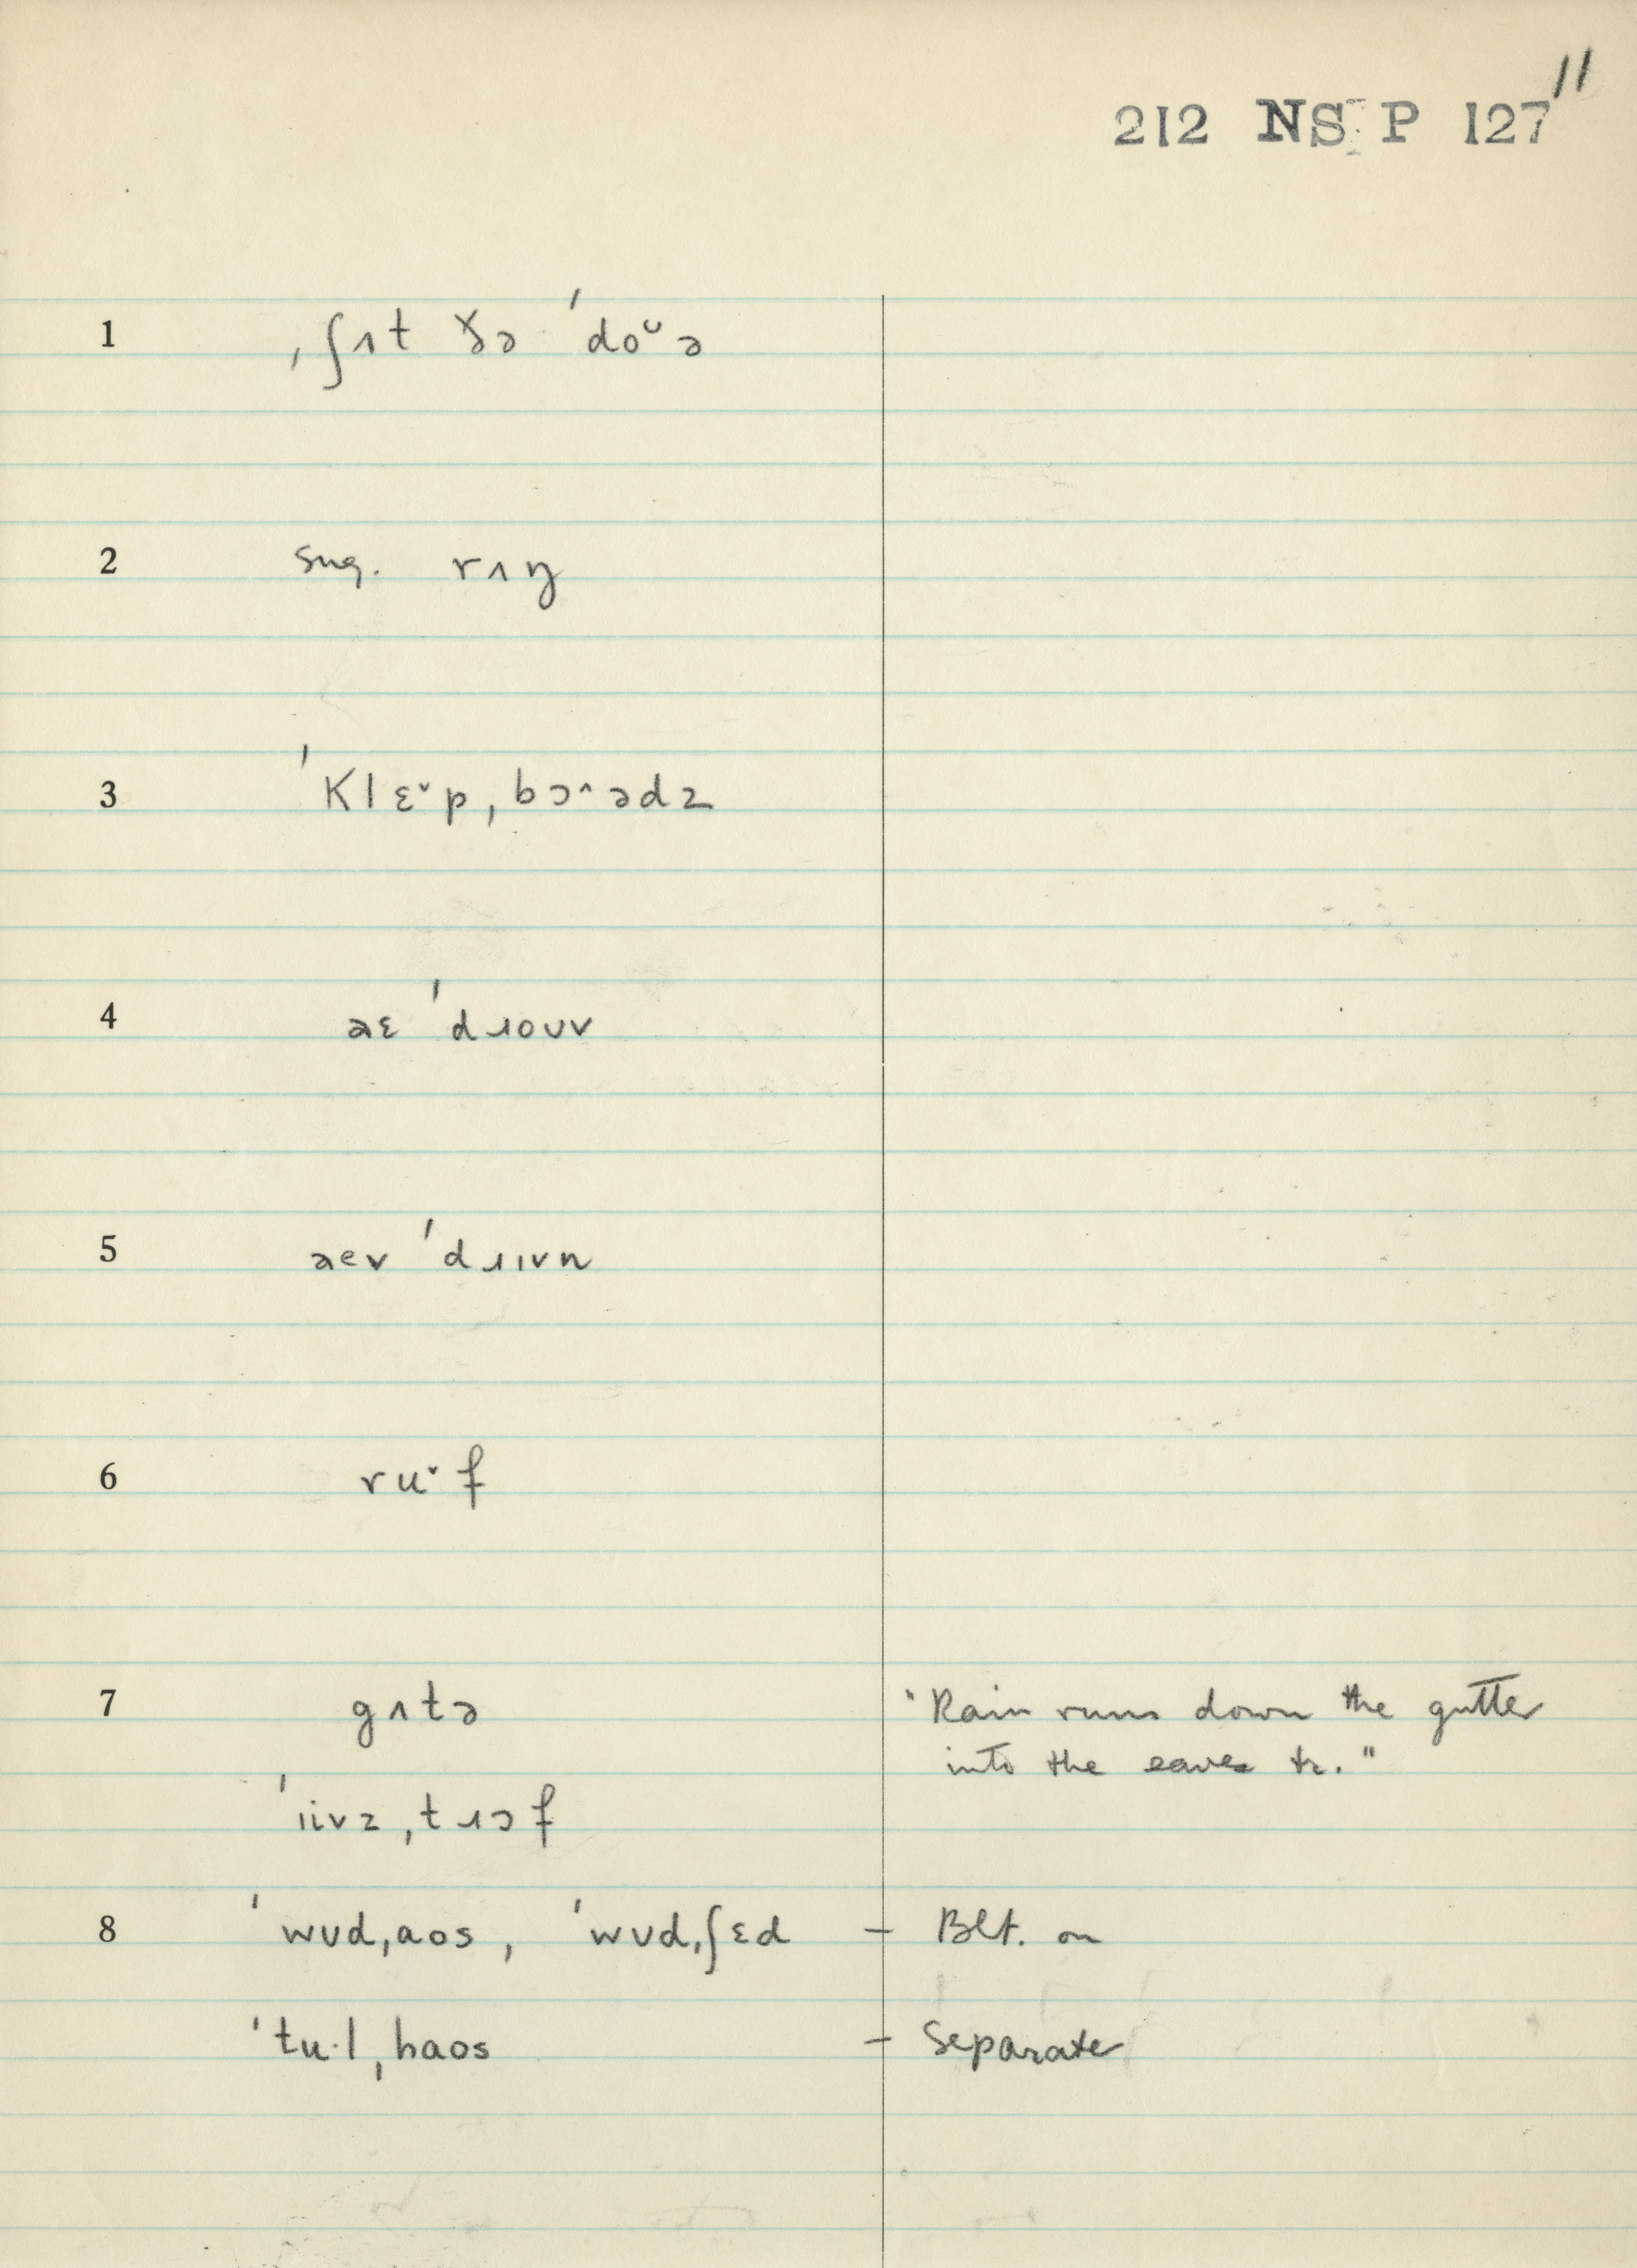 11
212 NS P 127
1 ˌʃɪt ɣ̌ə ˈdoᵕə
2 sug. rʌŋ
3 ˈKlɛ˅pˌbɔ˄ədz
4 aɛ ˈdɹoʊv
5 aev ˈdɹɪvn
6 ru˅f
7 gʌtə "Rain runs down the gutter
into the eaves tr."
ˈɪivzˌtɹɔf
8 ˈwʊdˌaos, ˈwʊdˌʃɛd – Blt. on
ˈtu·lˌhaos – Separate